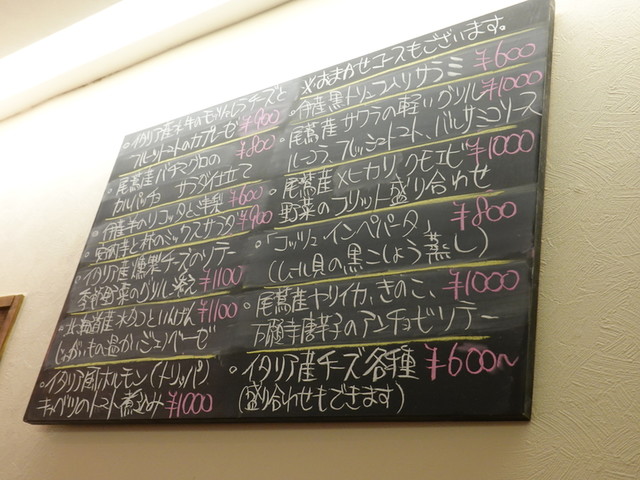 ・イタリア産水牛のモッツァレラチーズと
フルーツトマトのカプレーゼ ¥900
・尾鷲産バチマグロの ¥800
カルパッチョ サラダ仕立て
・伊産羊のリコッタと
¥600
ミックスサラダ ¥900
・イタリア産燻製チーズのソテー
季節野菜のグリル添え ¥1100
・北海道産水タコといんげん ¥1100
じゃがいもの温かいジェノベーゼ
・イタリア風ホルモン(トリッパ)
キャベツのトマト煮込み ¥1000
※おまかせコースもございます。
・伊産黒トリュフ入りサラミ ¥600
・尾鷲産サワラの軽いグリル ¥1000
ルーコラ、フレッシュトマト、バルサミコソース
・尾鷲産メヒカリ、クモエビ ¥1000
野菜のフリット盛り合わせ
・「コッツェ インペパータ」 ¥800
(ムール貝の黒こしょう蒸し)
・尾鷲産ヤリイカ、きのこ、 ¥1000
万願寺唐辛子のアンチョビソテー
・イタリア産チーズ各種 ¥600〜
(盛り合わせもできます)